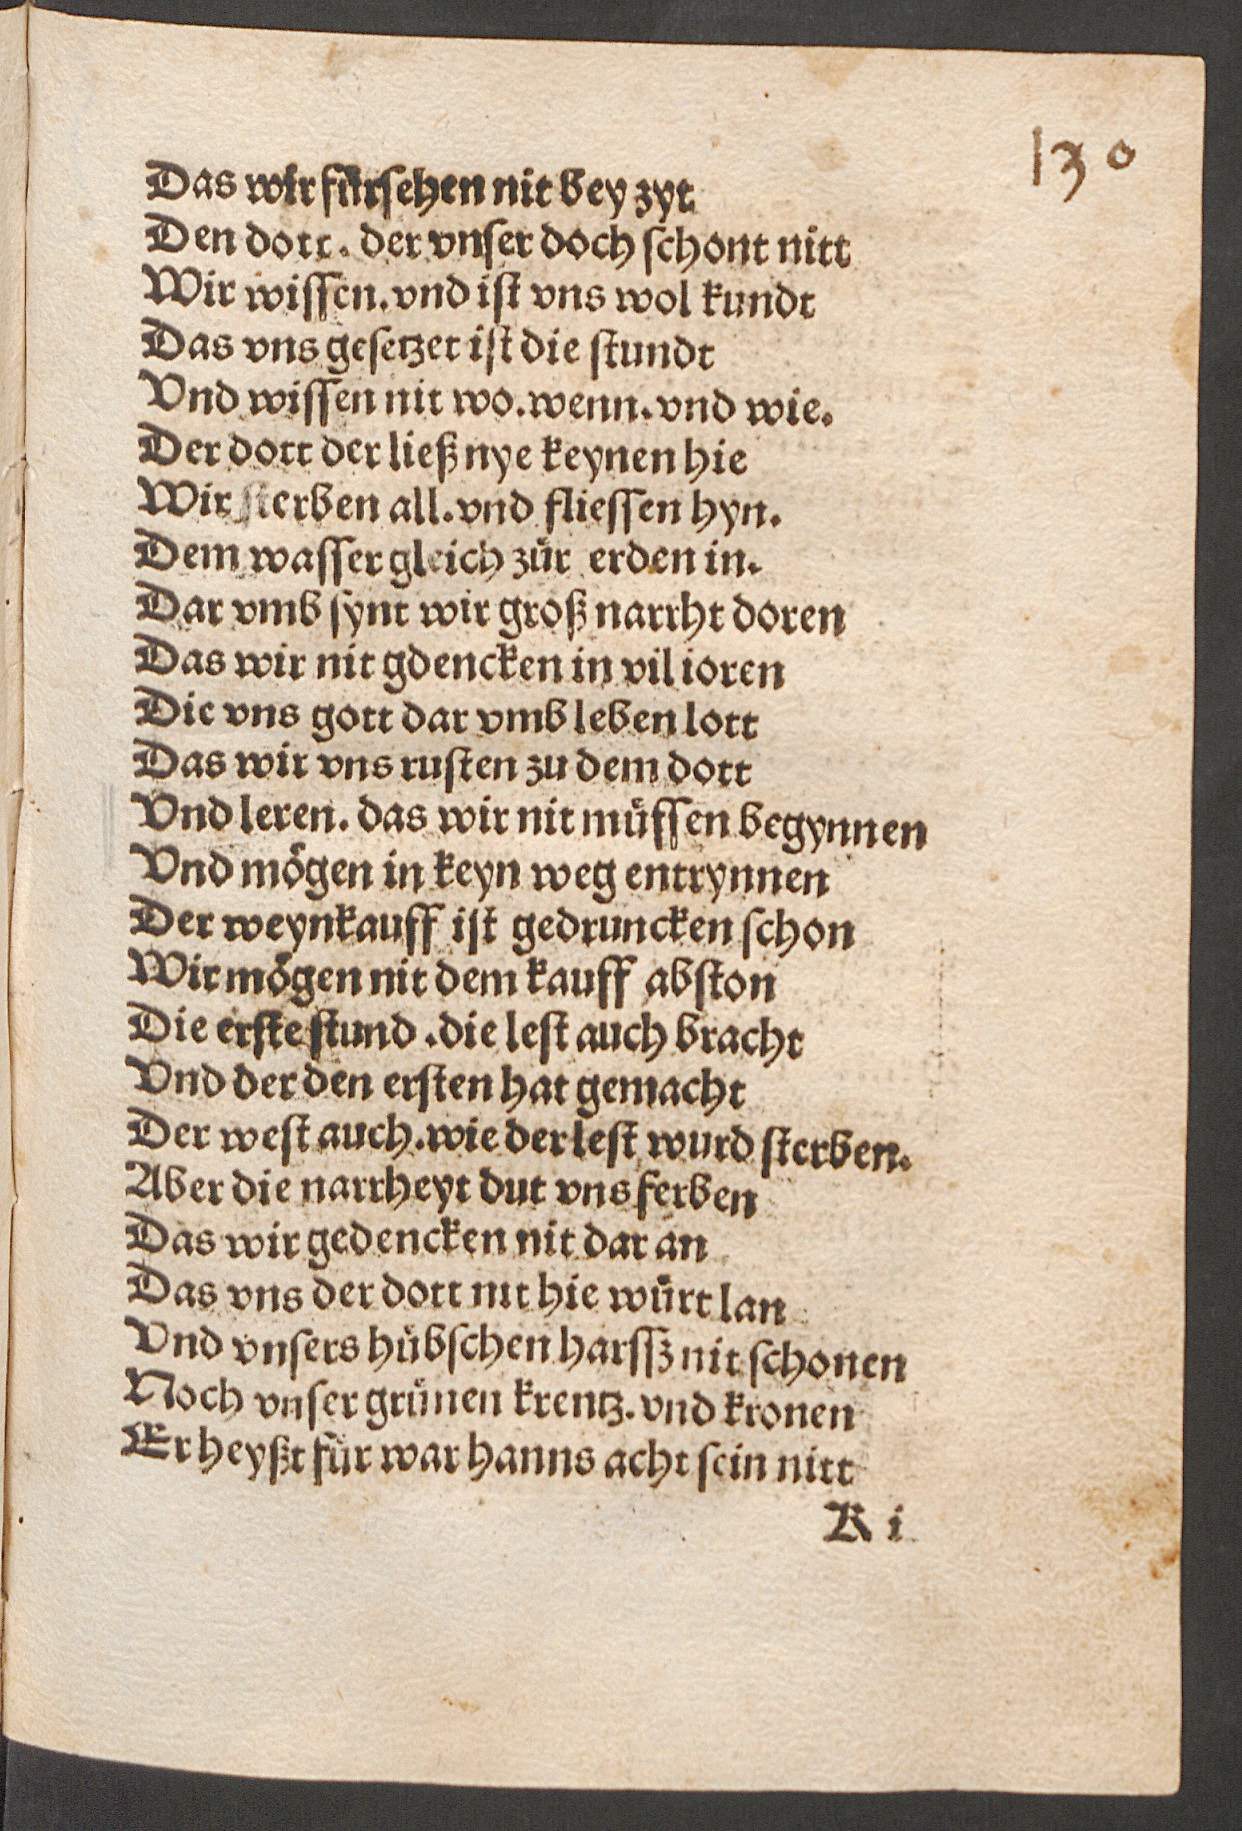 130
Das wir fürsehen nit bey zyt
Den dott. der vnser doch schont nitt
Wir wissen. vnd ist vns wol kundt
Das vns gesetzet ist die stundt
Vnd wissen nit wo. wenn. vnd wie.
Der dott der ließ nye keynen hie
Wir sterben all. vnd fliessen hyn.
Dem wasser gleich zůr erden in.
Dar vmb synt wir groß narrht doren
Das wir nit gdencken in vil ioren
Die vns gott dar vmb leben lott
Das wir vns rusten zu dem dott
Vnd leren. das wir nit müssen begynnen
Vnd mögen in keyn weg entrynnen
Der weynkauff ist gedruncken schon
Wir mögen nit dem kauff abston
Die erste stund. die lest auch bracht
Vnd der den ersten hat gemacht
Der west auch. wie der lest wurd sterben.
Aber die narrheyt dut vns ferben
Das wir gedencken nit dar an
Das vns der dott nit hie würt lan
Vnd vnsers hübschen harssz nit schonen
Noch vnser grünen krentz. vnd kronen
Er heyßt für war hanns acht sein nitt
K i